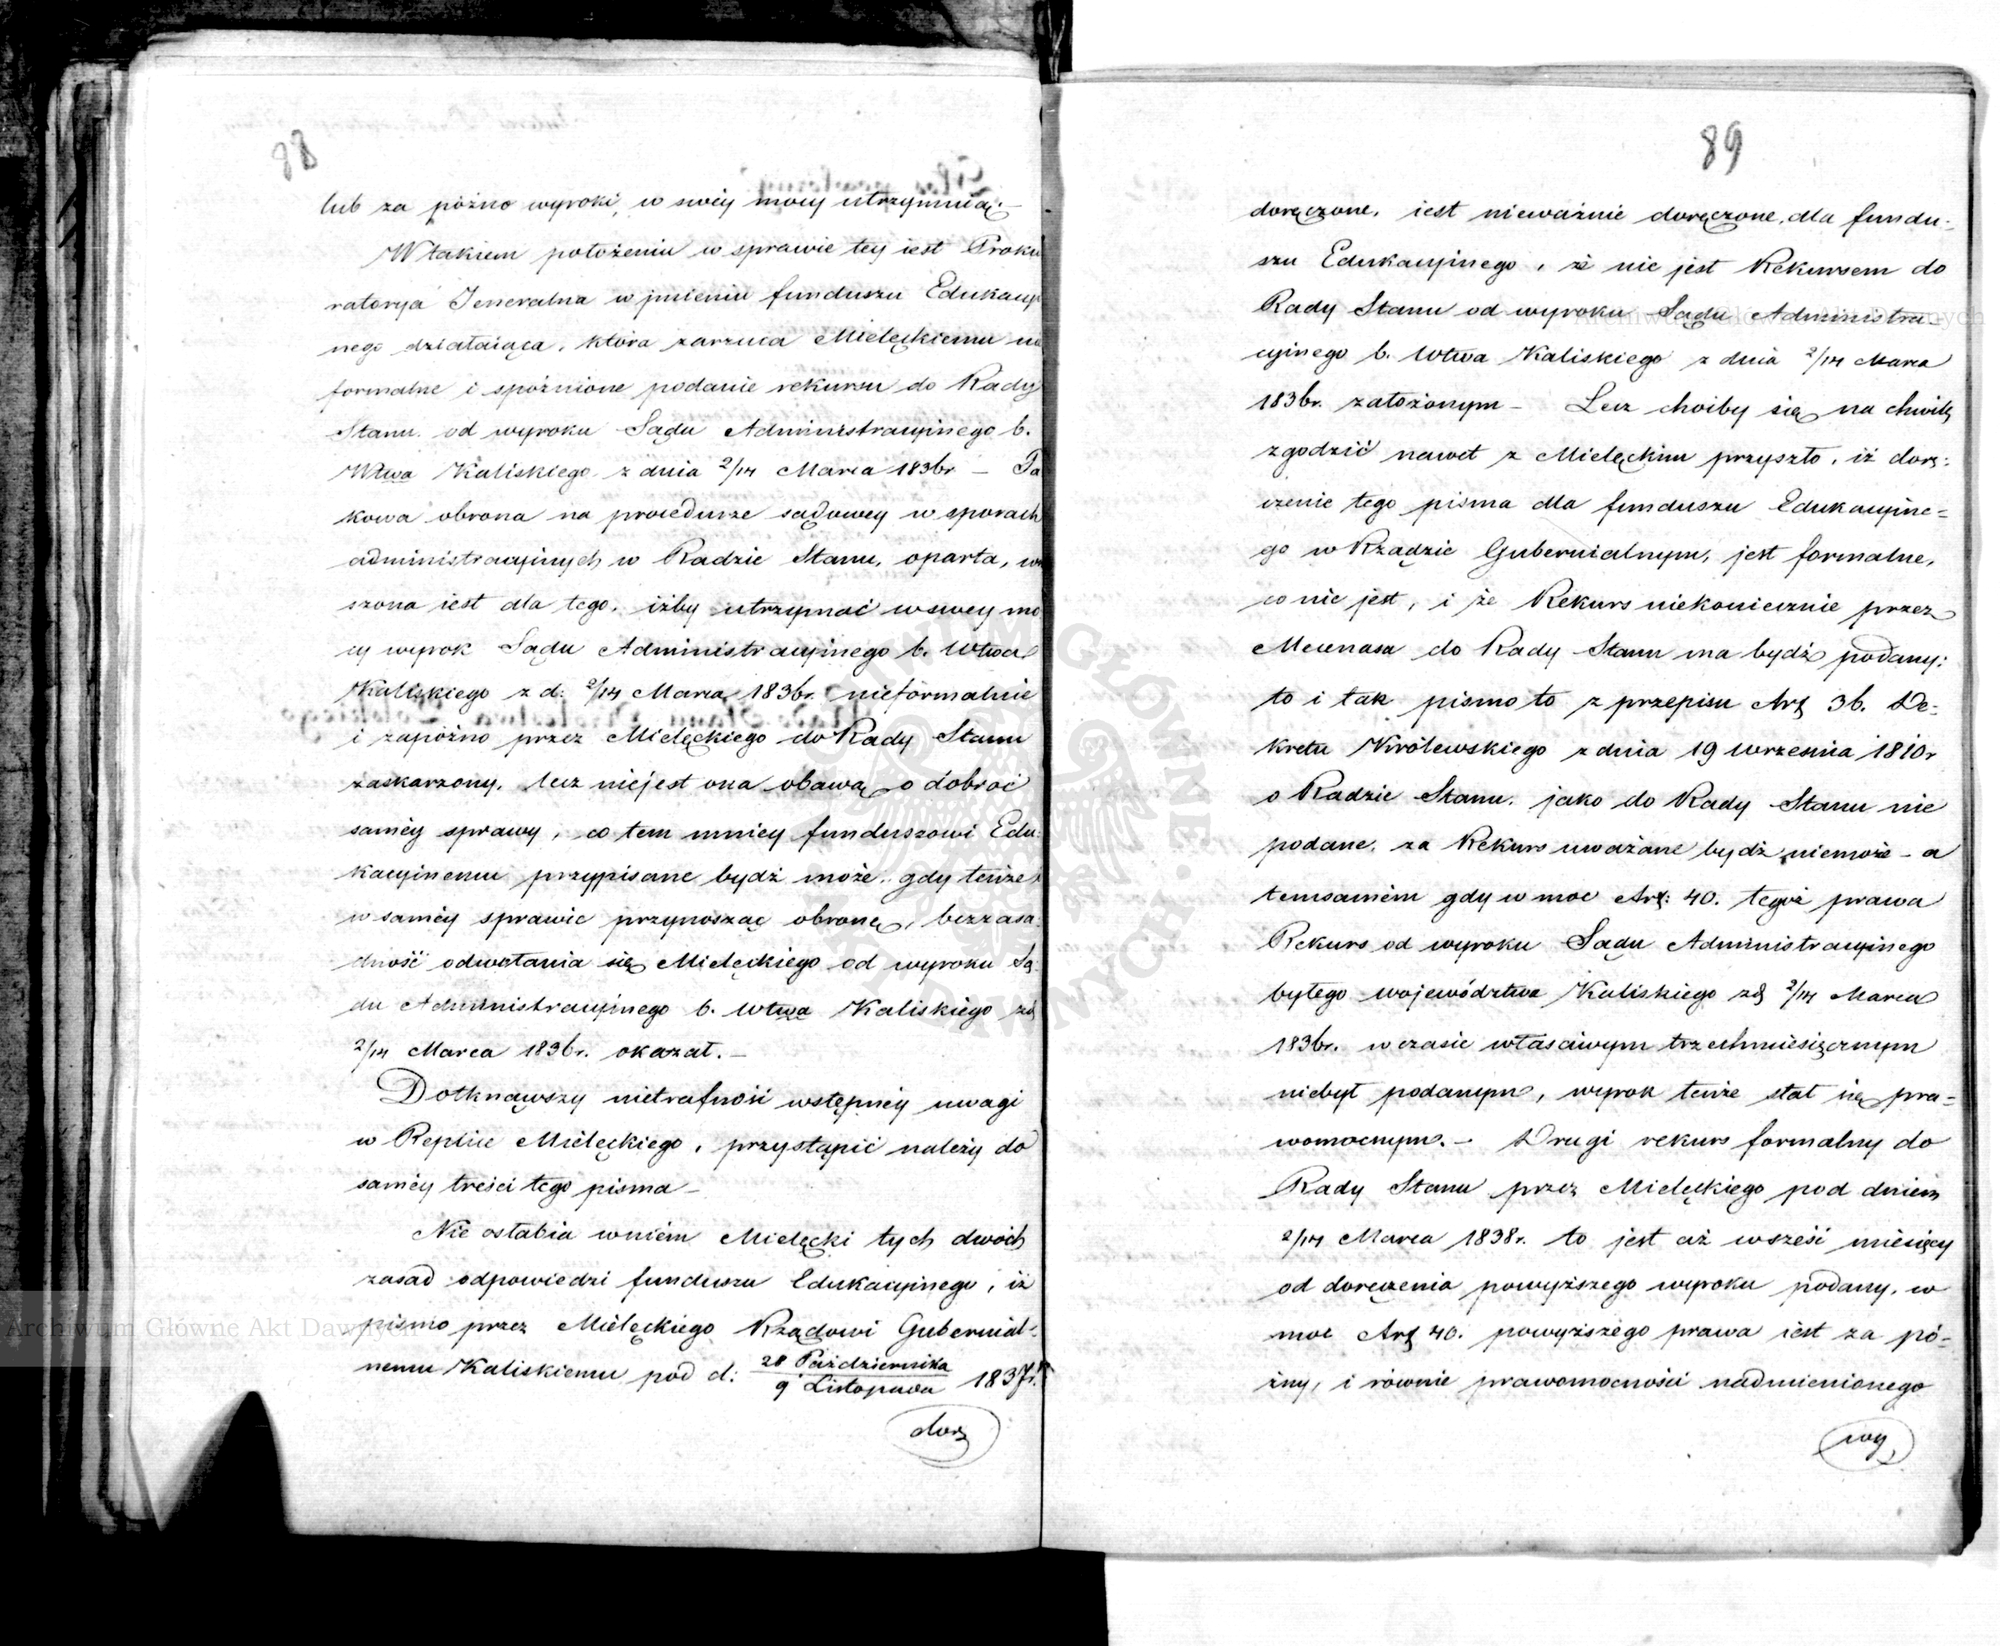 88
lub za późno wyroki, w swéy mocy utrzymuią.—
W takiem położeniu w sprawie tey iest Proku
ratorya Jeneralna w jmieniu funduszu Edukacyi
nego działaiąca, która zarzuca Mielęckiemu nie
formalne i spóźnione podanie rekursu do Rady
Stanu od wyroku Sądu Administracyinego b.
Wtwa Kaliskiego z dnia 2/14 Marca 1836r — Ta
kowa obrona na procedurze sądowey w sporach
administracyinych w Radzie Stanu, oparta,
szona iest dla tego, iżby utrzymać w swey mo
cy wyrok Sądu Administracyinego b. Wtwa
Kaliskiego z d: 2/14 Marca 1836r. nieformalnie
i zapóźno przez Mielęckiego do Rady Stanu
zaskarzony, lecz niejest ona obawą o dobroć
saméy sprawy, co tem mniey funduszowi Edu:
kacyinemu przypisane bydź może, gdy tenże
w saméy sprawie przynosząc obronę, bezzasa:
dność odwołania się Mielęckiego od wyroku Są:
du Administracyinego b. Wtwa Kaliskiego zd
2/14 Marca 1836r. okazał.—
Dotknąwszy nietrafność wstępnéy uwagi
w Replice Mielęckiego, przystąpić należy do
saméy treści tego pisma —
Nie osłabia w niém Mielęcki tych dwóch
zasad odpowiedzi funduszu Edukacyinego, iż
pismo przez Mielęckiego Rządowi Gubernial-
nemu Kaliskiemu pod d: 28 Października / 9 Listopada 1837r.
dorę
89
doręczone, iest nieważnie doręczone, dla fundu-
szu Edukacyinego, że nie jest Rekursem do
Rady Stanu od wyroku Sądu Administra-
cyinego b. Wtwa Kaliskiego z dnia 2/14 Marca
1836r. założonym — Lecz choiby się na chwilę
zgodzić nawet z Mielęckim przyszło, iż dorę:
czenie tego pisma dla funduszu Edukacyine=
go w Rządzie Gubernialnym, jest formalne,
co nie jest, i że Rekurs niekoniecznie przez
Mecenasa do Rady Stanu ma bydź podany:
to i tak pismo to z przepisu Art 36. De-
kretu Królewskiego z dnia 19 Września 1810r
o Radzie Stanu, jako do Rady Stanu nie
podane, za Rekurs uważane bydź niemoże — a
temsamém gdy w moc Art: 40. tegoż prawa
Rekurs od wyroku Sądu Administracyinego
byłego województwa Kaliskiego zd 2/14 Marca
1836r. w czasie właściwym trzechmiesięcznym
niebył podanym, wyrok tenże stał się pra=
womocnym.— Drugi rekurs formalny do
Rady Stanu przez Mielęckiego pod dniem
2/14 Marca 1838r. to jest aż w sześć miesięcy
od doręczenia powyższego wyroku podany, w
moc Art 40. powyższego prawa iest za pó-
żny, i równie prawomocności nadmienionego
wy,
Archiwum Główne Akt Dawnych